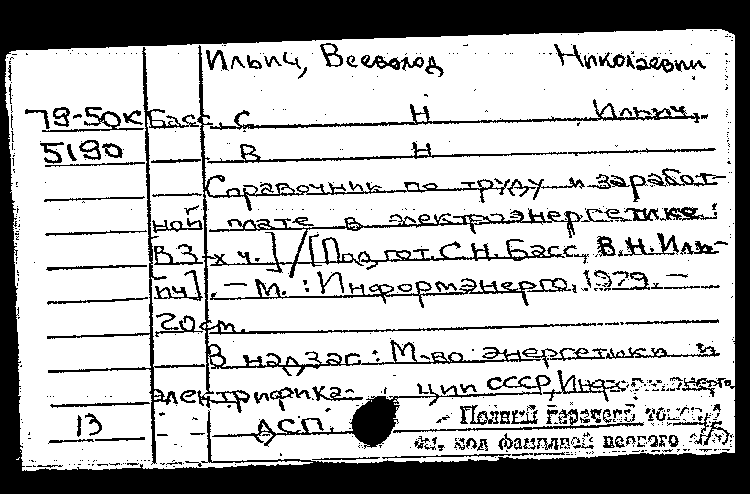 Ильич, Всеволод Николаевич
79-50к Басс, С Н Ильич,
5190 В Н
Справочник по труду и заработ-
ной плате в электроэнергетике:
В 3-х ч.] / [Подгот. С.Н. Басс, В.Н. Иль-
ич]. - М. : Информэнерго, 1979. -
20 см.
В надзаг: М-во энергетики и
электрифика- ции СССР, Информэнерго
13 ДСП. - Полный перечень томов
см. под фамилией первого